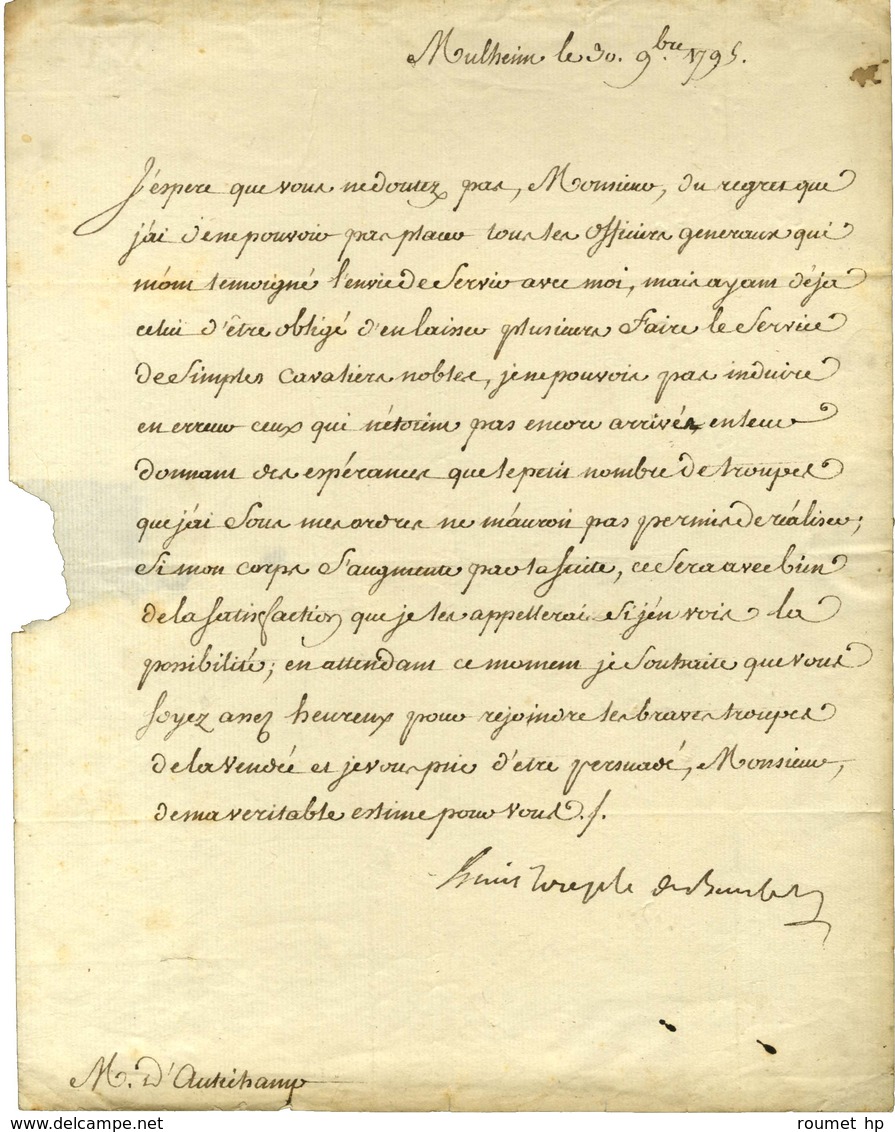 Mulheim le 30. 9bre 1795.
J'espere que vous ne doutez pas, Monsieur, du regret que
j'ai d'ene pouvoir pas placer tous les officiers generaux qui
m'ont temoigné l'envie de Servir avec moi, mais ayant déja
celui d'être obligé d'en laisser plusieurs Faire le Service
de Simples Cavaliers nobles, je ne pouvois pas induire
en erreur ceux qui n'étoient pas encore arrivés, en leur
donnant des espérances que le petit nombre de troupes
que j'ai Sous mes ordres ne m'auroit pas permis de réaliser;
Si mon corps S'augmente par la Suite, ce Sera avec bien
de la Satisfaction que je les appellerai Si j'en vois la
possibilité; en attendant ce moment je Souhaite que vous
Soyez assez heureux pour rejoindre les braves troupes
de la Vendée et je vous prie d'être persuadé, Monsieur,
de ma veritable estime pour vous ./.
Louis Joseph de Bourbon
M. d'Autichamp
roumet hp